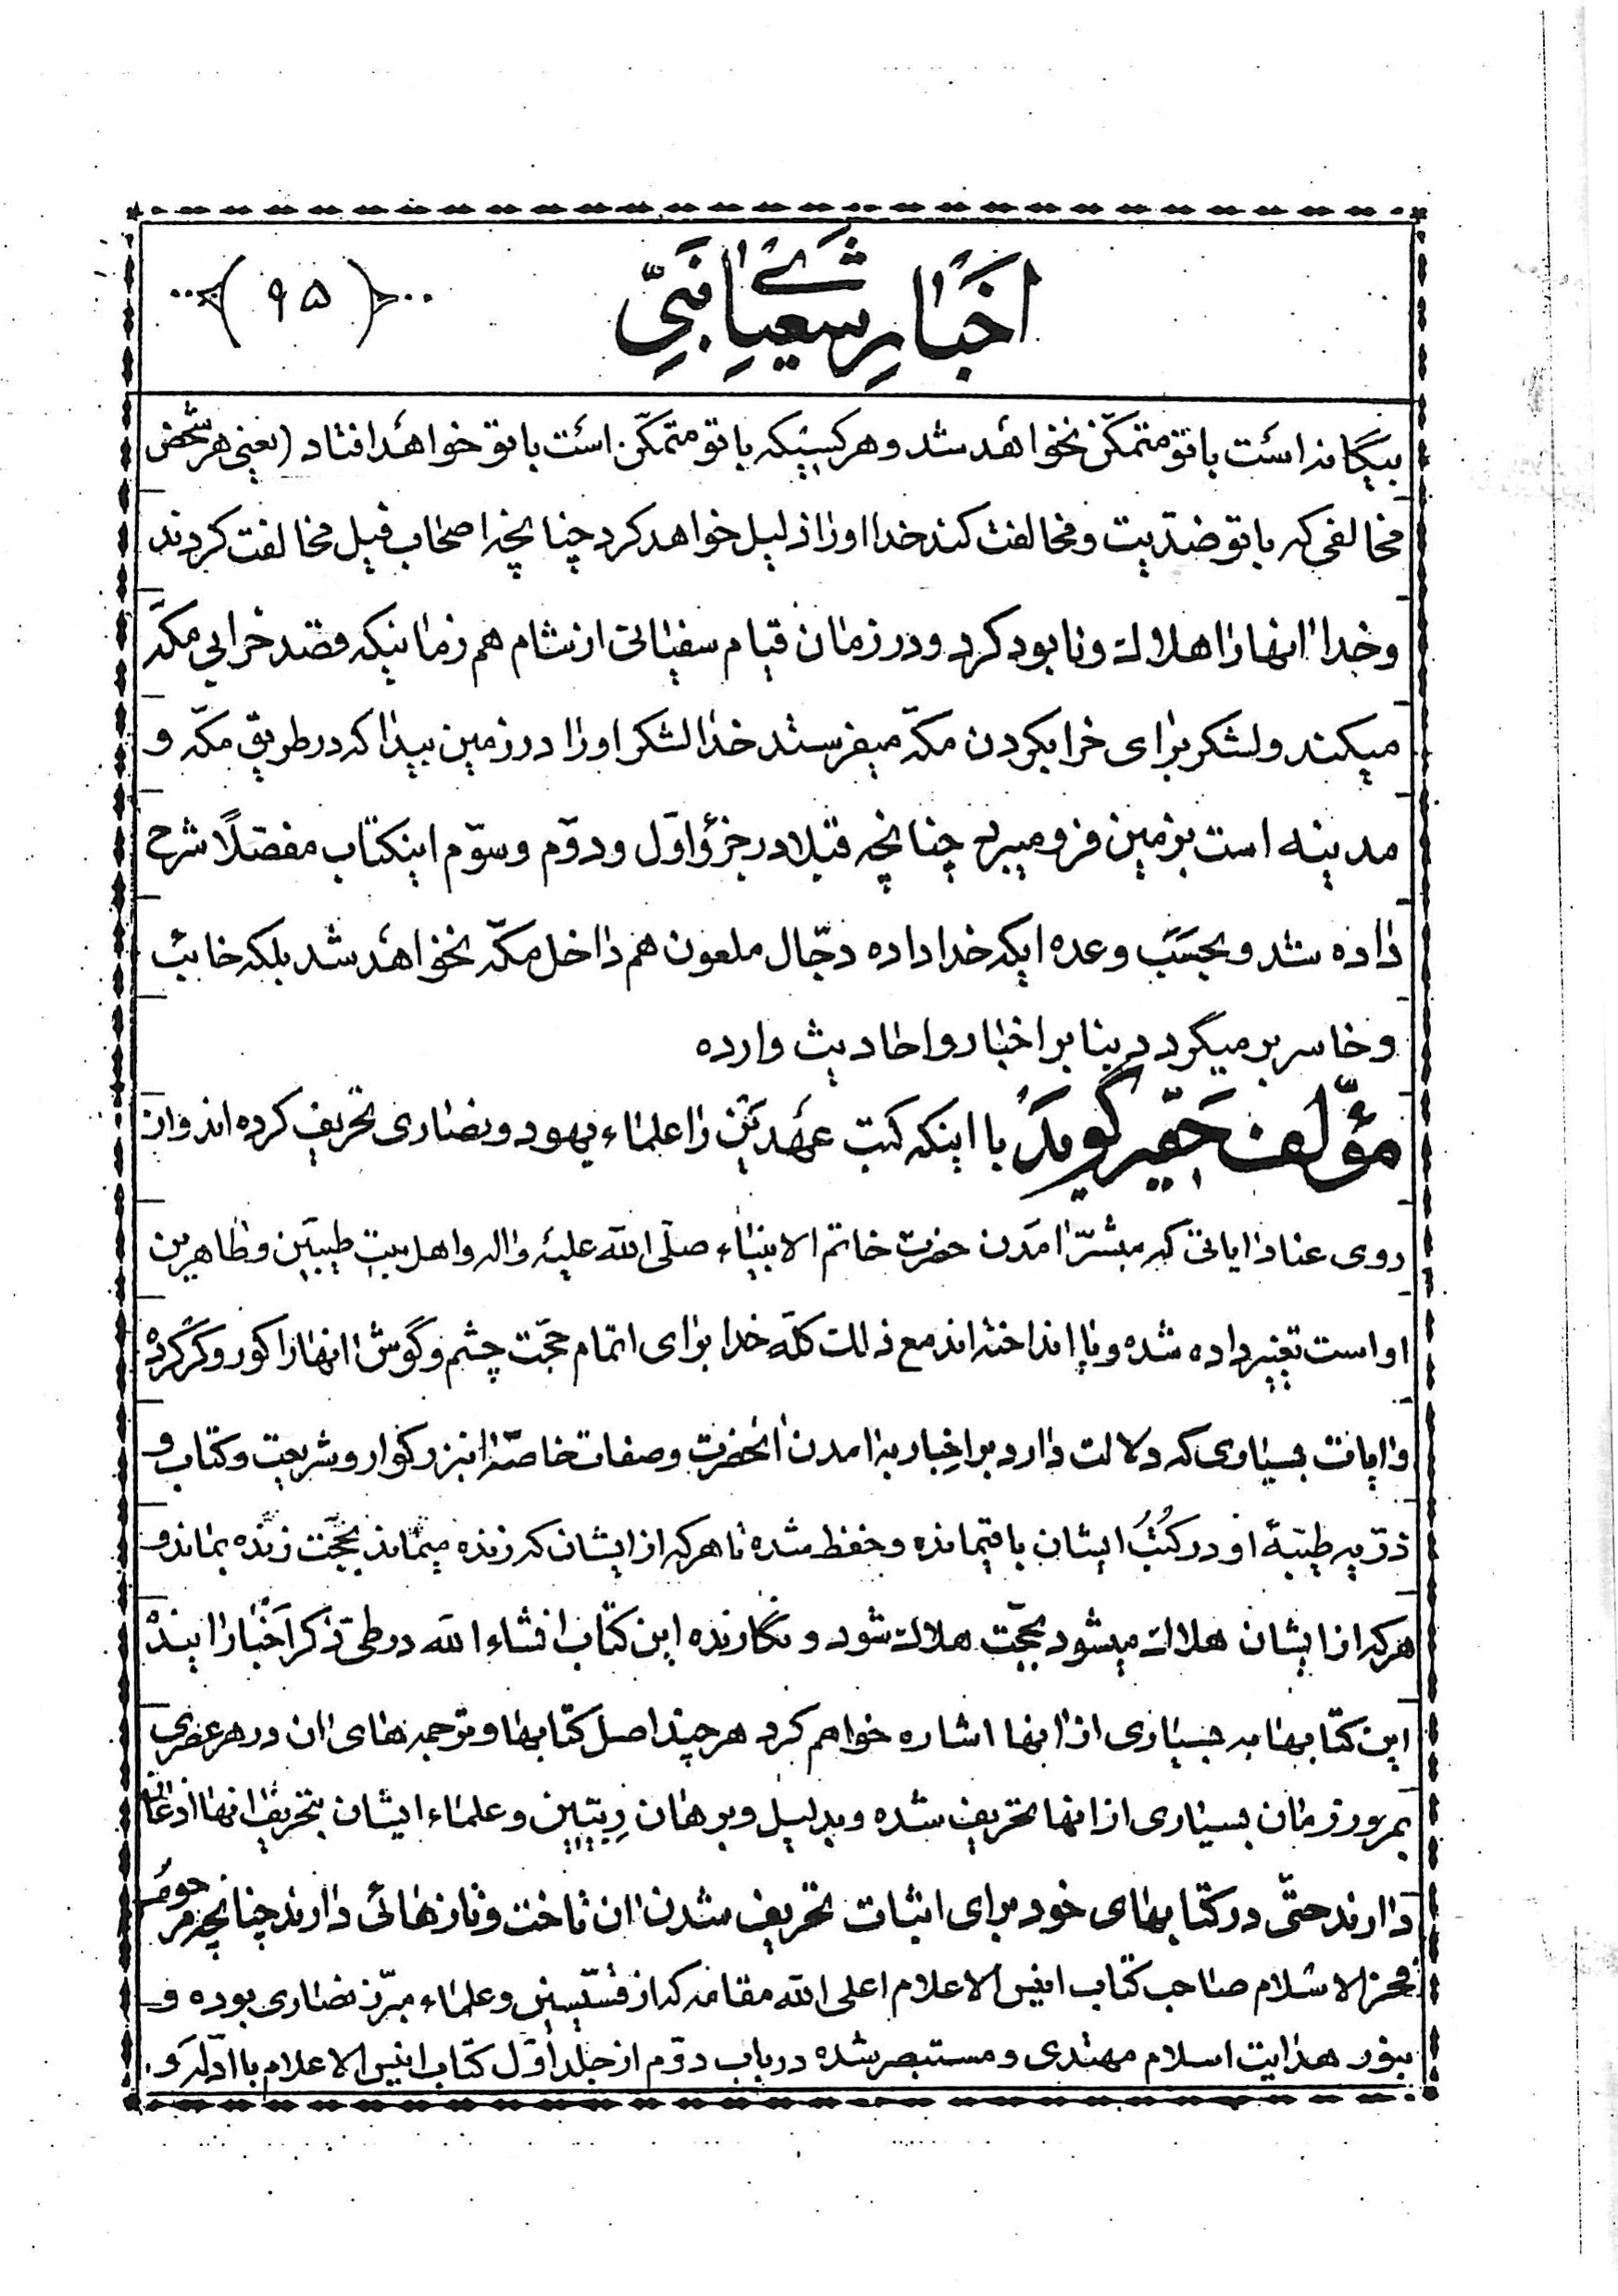 اخبار شعیای نبی (۹۵)
بیگانه است با تو متمکّن نخواهد شد و هر کسیکه با تو متمکّن است با تو خواهد افتاد (یعنی هر شخص
مخالفی که با تو ضدّیت و مخالفت کند خدا او را ذلیل خواهد کرد چنانچه اصحاب فیل مخالفت کردند
و خدا انها را هلاک و نابود کرد و در زمان قیام سفیانی از شام هم زمانیکه قصد خرابی مکّه
میکند و لشکر برای خرابکردن مکّه میفرستد خدا لشکر او را در زمین بیدا که در طریق مکّه و
مدینه است بزمین فرو میبرد چنانچه قبلا در جزؤ اوّل و دوّم و سوّم اینکتاب مفصّلاً شرح
داده شد و بحسَب وعده ایکه خدا داده دجّال ملعون هم داخل مکّه نخواهد شد بلکه خائب
و خاسر بر میگردد بنا بر اخبار و احادیث وارده
مؤلّف حقیر گوید با اینکه کتب عهدَین را علماء یهود و نصاری تحریف کرده اند و از
روی عناد ایاتی که مبشّر امدن حضرت خاتم الانبیاء صلّی الله علیه و اله و اهل بیت طیبین و طاهرین
او است تغییر داده شده و یا انداخته اند مع ذلک کلّه خدا برای اتمام حجّت چشم و گوش انها را کور و کر کرده
و ایات بسیاری که دلالت دارد بر اِخبار به امدن انحضرت و صفات خاصّه انبزرگوار و شریعت و کتاب و
ذرّیه طیّبهٔ او در کتُب ایشان باقیمانده و حفظ شده تا هر که از ایشان که زنده میماند بحجّت زنده بماند و
هر که از ایشان هلاک میشود بحجّت هلاک شود و نگارنده این کتاب انشاء الله در طی ذکر اَخبار اینده
این کتابها به بسیاری از انها اشاره خواهم کرد هر چند اصل کتابها و ترجمه های ان در هر عصری
بمرور زمان بسیاری از انها تحریف شده و بدلیل و برهان رِبّیین و علماء ایشان بتحریف انها اذعان
دارند حتّی در کتابهای خود برای اثبات تحریف شدن ان تاخت و تازهائی دارند چنانچه مرحوم
فخر الاسلام صاحب کتاب انیس الاعلام اعلی الله مقامه که از قسّیسین و علماء مبرّز نصاری بوده و
بنور هدایت اسلام مهتدی و مستبصر شده در باب دوّم از جلد اوّل کتاب انیس الاعلام با ادّله و